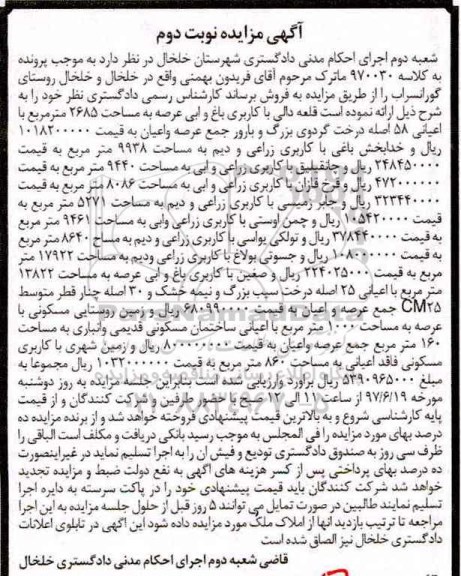 آگهی مزایده نوبت دوم
شعبه دوم اجرای احکام مدنی دادگستری شهرستان خلخال در نظر دارد به موجب پرونده
به کلاسه ۹۷۰۰۳۰ ماترک مرحوم آقای فریدون بهمنی واقع در خلخال و خلخال روستای
گورانسراب را از طریق مزایده به فروش برساند کارشناس رسمی دادگستری نظر خود را به
شرح ذیل ارائه نموده است قلعه دالی با کاربری باغ و ابی عرصه به مساحت ۲۶۸۵ مترمربع با
اعیانی ۵۸ اصله درخت گردوی بزرگ و بارور جمع عرصه واعیان به قیمت ۱۰۱۸۲۰۰۰۰۰
ریال و خدابخش باغی با کاربری زراعی و دیم به مساحت ۹۹۳۸ متر مربع به قیمت
۲۴۸۴۵۰۰۰۰ ریال و حانقیلیق با کاربری زراعی و ابی به مساحت ۹۴۴۰ متر مربع به قیمت
۴۷۲۰۰۰۰۰۰ ریال و قرخ قازان با کاربری زراعی و ابی به مساحت ۸۰۸۶ متر مربع به قیمت
۳۲۳۴۴۰۰۰۰ ریال و جابر زمیسی با کاربری زراعی و دیم به مساحت ۵۲۷۱ متر مربع به
قیمت ۱۰۵۴۲۰۰۰۰ ریال و چمن اوستی با کاربری زراعی وابی به مساحت ۹۴۶۱ متر مربع
به قیمت ۳۷۸۴۴۰۰۰۰ ریال و تولکی یواسی با کاربری زراعی و دیم به مساح ۸۶۴۰ متر مربع
به قیمت ۱۰۸۰۰۰۰۰۰ ریال و جسونی بولاغ با کاربری زراعی ودیم به مساحت ۱۷۹۲۲ متر
مربع به قیمت ۲۲۴۰۲۵۰۰۰ ریال و صغین با کاربری باغ و ابی عرصه به مساحت ۱۳۸۲۲
متر مربع با اعیانی ۲۵ اصله درخت سیب بزرگ و نیمه خشک و ۳۰ اصله چنار قطر متوسط
CM۲۵ جمع عرصه و اعیان به قیمت ۶۸۰۹۹۰۰۰۰ ریال و زمین روستایی مسکونی با
عرصه به مساحت ۱۰۰۰ متر مربع با اعیانی ساختمان مسکونی قدیمی وانباری به مساحت
۱۶۰ متر مربع جمع عرصه واعیان به قیمت ۸۰۰۰۰۰۰۰۰ ریال و زمین شهری با کاربری
مسکونی فاقد اعیانی به مساحت ۸۶۰ متر مربع به قیمت ۱۰۳۲۰۰۰۰۰۰ ریال مجموعا به
مبلغ ۵۳۹۰۹۶۵۰۰۰ ریال براورد وارزیابی شده است بنابراین جلسه مزایده به روز دوشنبه
مورخه ۹۷/۶/۱۹ از ساعت ۱۱ الی ۱۲ صبح با حضور طرفین و شرکت کنندگان و از قیمت
پایه کارشناسی شروع و به بالاترین قیمت پیشنهادی فروخته خواهد شد و از برنده مزایده ده
درصد بهای مورد مزایده را فی المجلس به موجب رسید بانکی دریافت و مکلف است الباقی را
ظرف سی روز به صندوق دادگستری تودیع و فیش ان را به اجرا تسلیم نماید در غیراینصورت
ده درصد بهای پرداختی پس از کسر هزینه های اگهی به نفع دولت ضبط و مزایده تجدید
خواهد شد شرکت کنندگان باید قیمت پیشنهادی خود را در پاکت سرسته به دایره اجرا
تسلیم نمایند طالبین در صورت تمایل می توانند ۵ روز قبل از حلول جلسه مزایده به این اجرا
مراجعه تا ترتیب بازدید انها از املاک ملک مورد مزایده داده شود این اگهی در تابلوی اعلانات
دادگستری خلخال نیز الصاق شده است
قاضی شعبه دوم اجرای احکام مدنی دادگستری خلخال